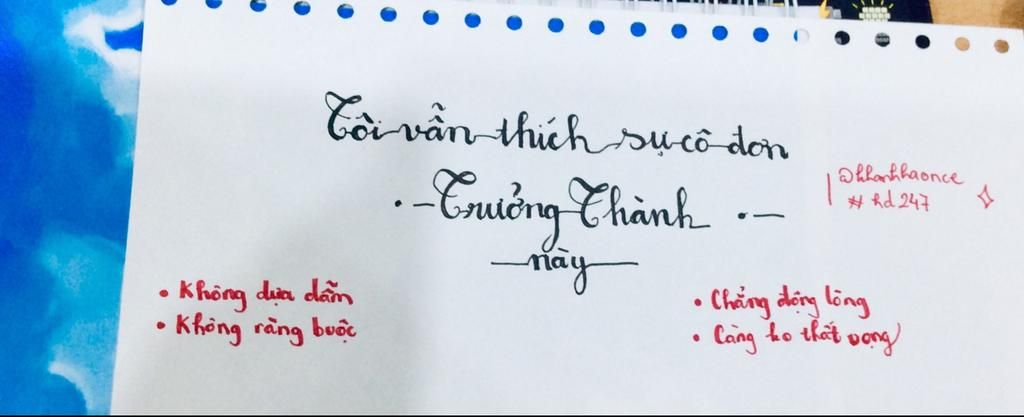 Tôi vẫn thích sự cô đơn
• Trưởng Thành •
này
@khanhhaonce
# hd247
• Không dựa dẫm
• Không ràng buộc
• Chẳng động lòng
• Càng ko thất vọng